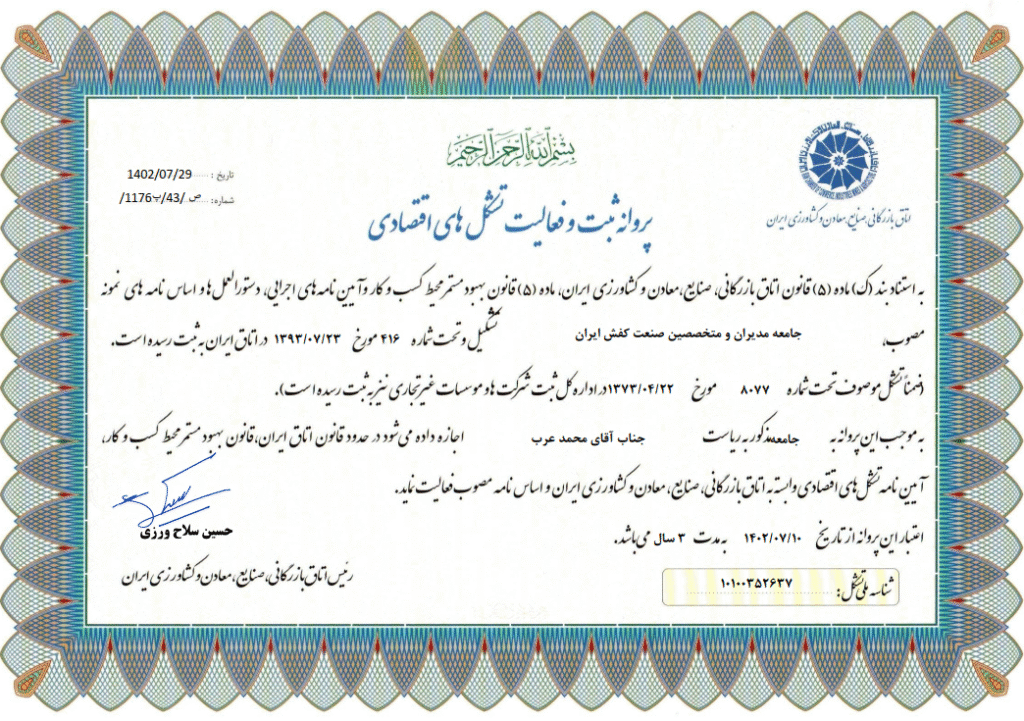 بسم الله الرحمن الرحیم
اتاق بازرگانی، صنایع، معادن و کشاورزی ایران
تاریخ : 1402/07/29
شماره: 1176/پ/43/ص/
پروانه ثبت و فعالیت تشکل های اقتصادی
به استناد بند (ک) ماده (۵) قانون اتاق بازرگانی، صنایع، معادن و کشاورزی ایران، ماده (۵) قانون بهبود مستمر محیط کسب و کار و آیین نامه های اجرایی، دستورالعمل ها و اساس نامه های نمونه
مصوب، جامعه مدیران و متخصصین صنعت کفش ایران تشکیل و تحت شماره ۴۱۶ مورخ ۱۳۹۳/۰۷/۲۳ در اتاق ایران به ثبت رسیده است.
(ضمناً تشکل موصوف تحت شماره ۸۰۷۷ مورخ ۱۳۷۳/۰۴/۲۲ در اداره کل ثبت شرکت ها و موسسات غیرتجاری نیز به ثبت رسیده است).
به موجب این پروانه به جامعه مذکور به ریاست جناب آقای محمد عرب اجازه داده می شود در حدود قانون اتاق ایران، قانون بهبود مستمر محیط کسب و کار،
آیین نامه تشکل های اقتصادی وابسته به اتاق بازرگانی، صنایع، معادن و کشاورزی ایران و اساس نامه مصوب فعالیت نماید.
اعتبار این پروانه از تاریخ ۱۴۰۲/۰۷/۱۰ به مدت ۳ سال می باشد.
حسین سلاح ورزی
رئیس اتاق بازرگانی، صنایع، معادن و کشاورزی ایران
شناسه ملی تشکل: ۱۰۱۰۰۳۵۲۶۳۷